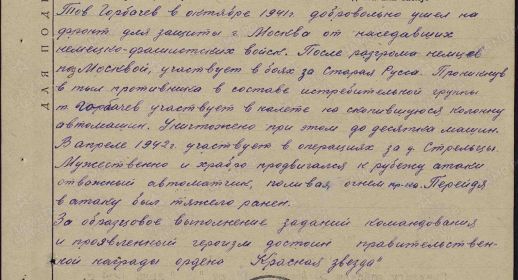 Тов Горбачев в октябре 1941г. добровольно ушел на
фронт для защиты г. Москва от наседавших
немецко-фашистских войск. После разгрома немцев
под Москвой, участвует в боях за Старая Русса. Проникнув
в тыл противника в составе истребительной группы
т. Горбачев участвует в налете на скопившуюся колонну
автомашин. Уничтожено при том до десятка машин.
В апреле 1942г. участвует в операциях за д. Стрельцы.
Мужественно и храбро продвигался к рубежу атаки
отважный автоматчик, поливая огнем пр-ка. Перейдя
в атаку был тяжело ранен.
За образцовое выполнение заданий командования
и проявленный героизм достоин правительствен-
ной награды ордена "Красная звезда"
ДЛЯ ПОД